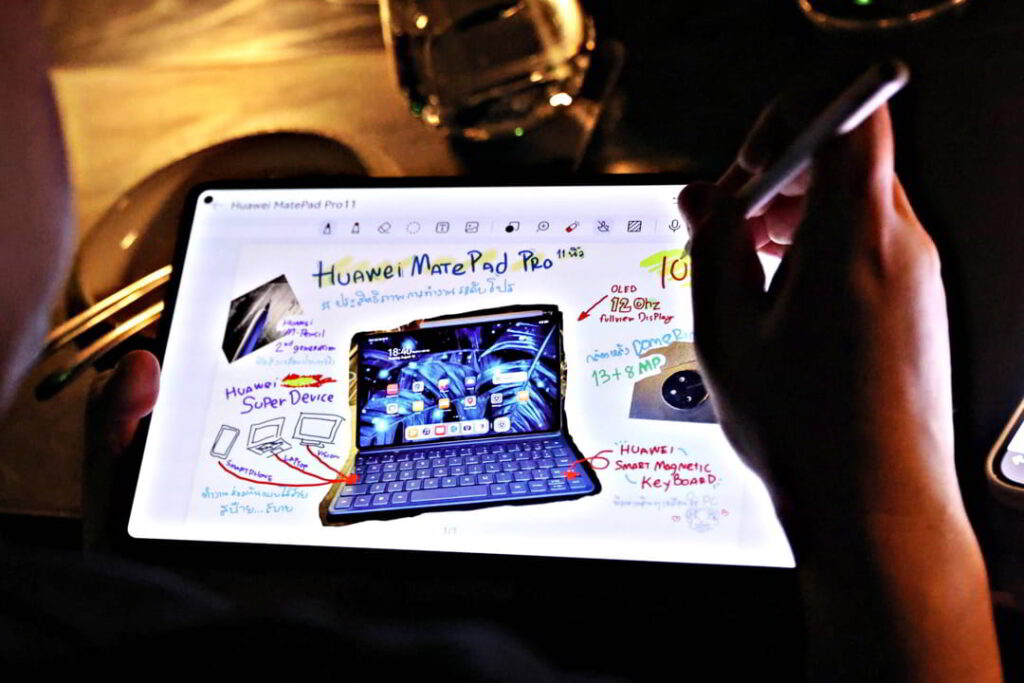 Huawei MatePad Pro11
HUAWEI MATEPAD PRO 11 นิ้ว
# ประสิทธิภาพการทำงานระดับโปร
HUAWEI
M-Pencil
2nd generation
HUAWEI
SUPER DEVICE
SMARTPHONE
LAPTOP
VISION
สบาย...สบาย
18:40
10
OLED
120hz
Fullview Display
กล้องหลัง
13+8 MP
HUAWEI
SMART MAGNETIC
KEYBOARD
1/1